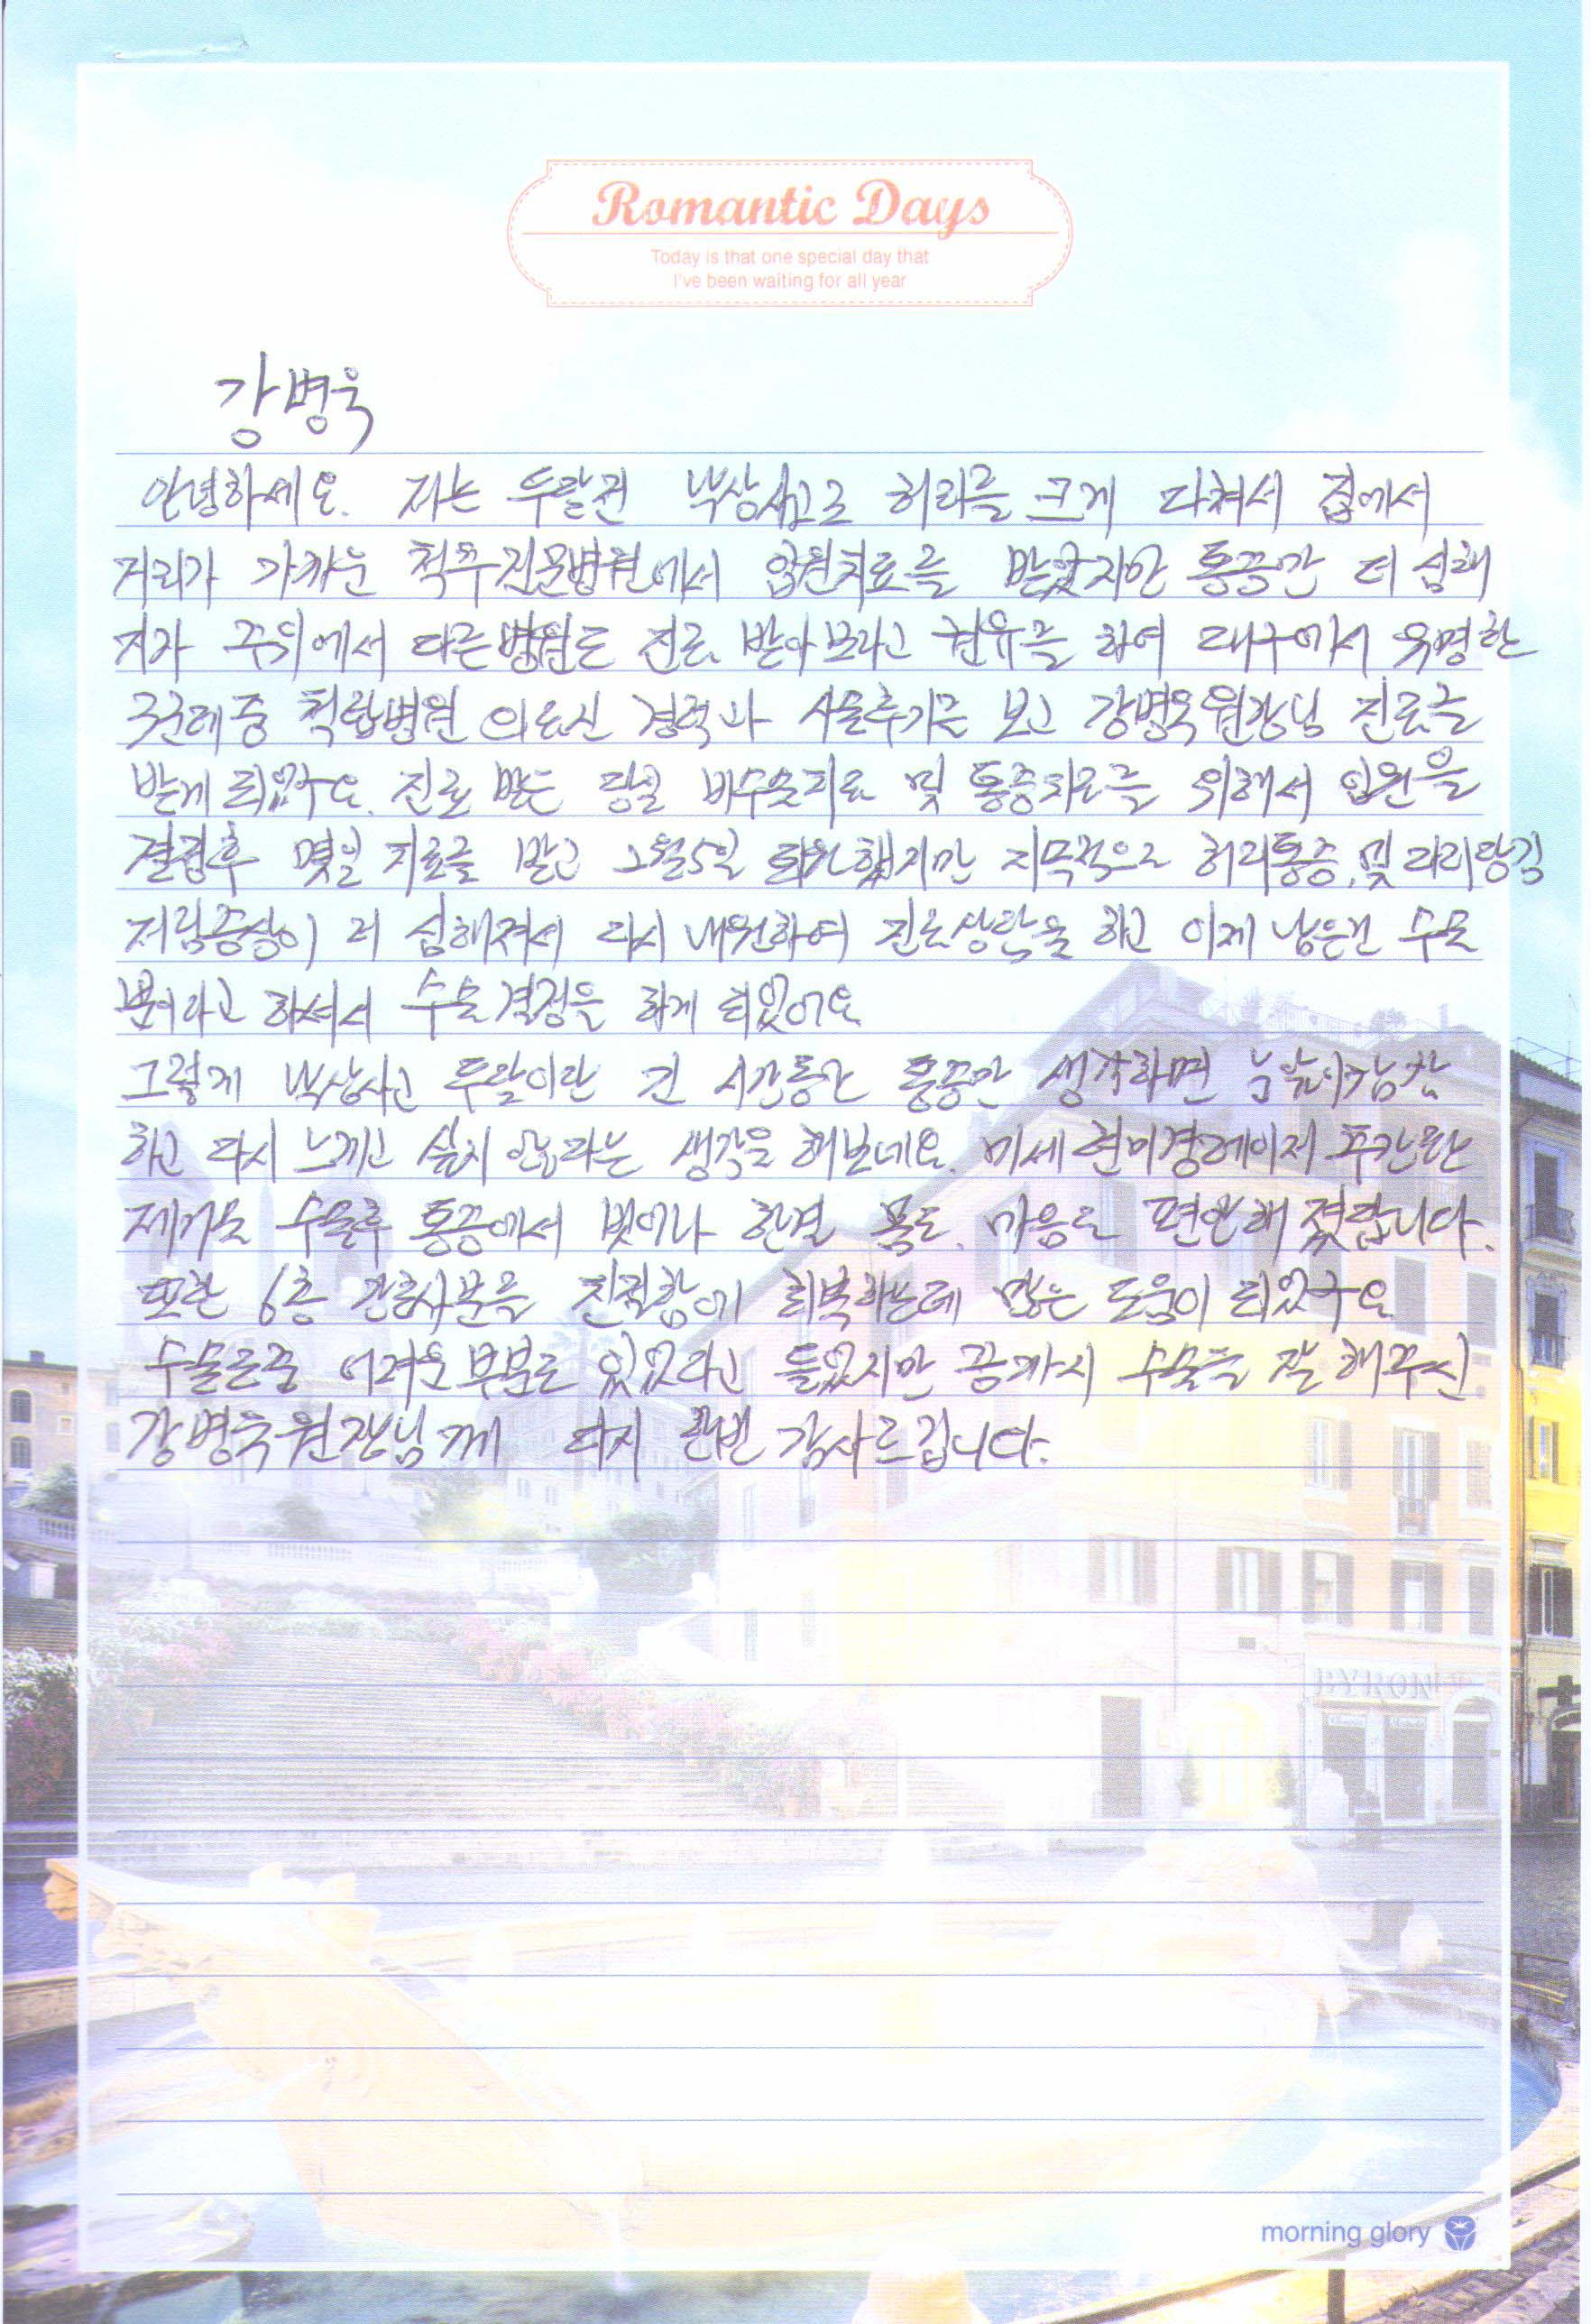 Romantic Days
Today is that one special day that
I've been waiting for all year
강병욱
안녕하세요. 저는 두달전 낙상사고로 허리를 크게 다쳐서 집에서
거리가 가까운 척추전문병원에서 입원치료를 받았지만 통증만 더 심해
져가 주위에서 다른병원도 진료 받아보라고 권유를 하여 대구에서 유명한
곳 중 척탑병원 의료진 경력과 시술후기를 보고 강병욱원장님 진료를
받게 되었구요. 진료 받은 당일 비수술치료 및 통증치료를 위해서 입원을
결정후 몇일 치료를 받고 5일 퇴원했지만 지속적으로 허리통증, 및 다리당김
저림증상이 더 심해져서 다시 내원하여 진료상담을 하고 이제 남은건 수술
뿐이라고 하셔서 수술결정을 하게 되었어요
그렇게 낙상사고 두달이란 긴 시간동안 통증만 생각하면
하고 다시 느끼고 싶지 않다는 생각을 해보네요. 미세현미경레이저
제거술 수술후 통증에서 벗어나 한결 몸도, 마음도 편안해 졌답니다.
또한 6층 간호사분들 친절함에 회복하는데 많은 도움이 되었구요
수술도중 어려운부분도 있었다고 들었지만 끝까지 수술을 잘 해주신
강병욱원장님께 다시 한번 감사드립니다.
morning glory